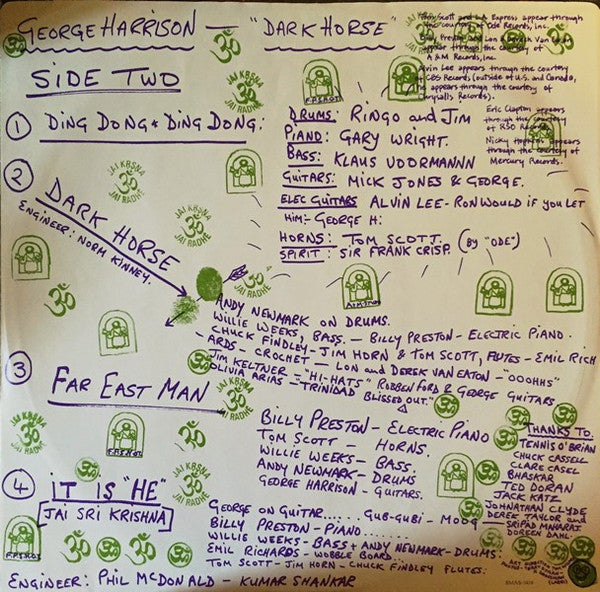 GEORGE HARRISON — "DARK HORSE"
Tom Scott and L.A. Express appear through
the courtesy of Ode Records, Inc.
Billy Preston and Lon & Derek Van Eaton
appear through the courtesy of
A & M Records, Inc.
Alvin Lee appears through the courtesy
of CBS Records (outside of U.S. and Canada,
he appears through the courtesy of
Chrysalis Records).
Eric Clapton appears
through the courtesy
of RSO Records
Nicky Hopkins appears
through the courtesy of
Mercury Records.
SIDE TWO
① DING DONG * DING DONG:
DRUMS: RINGO AND JIM
PIANO: GARY WRIGHT.
BASS: KLAUS VOORMANNN
GUITARS: MICK JONES & GEORGE.
ELEC GUITARS ALVIN LEE - RON WOULD IF YOU LET
HIM:- GEORGE H:
HORNS: TOM SCOTT. (BY "ODE")
SPIRIT: SIR FRANK CRISP.
② DARK HORSE
ENGINEER: NORM KINNEY.
ANDY NEWMARK ON DRUMS.
WILLIE WEEKS, BASS. — BILLY PRESTON - ELECTRIC PIANO.
CHUCK FINDLEY - JIM HORN & TOM SCOTT, FLUTES - EMIL RICH
- ARDS - CROCHET — LON AND DEREK VAN EATON - "OOOHHS"
JIM KELTNER - "HI-HATS" ROBBEN FORD & GEORGE GUITARS
OLIVIA ARIAS - "TRINIDAD BLISSED OUT."
③ FAR EAST MAN
BILLY PRESTON - ELECTRIC PIANO
TOM SCOTT - HORNS.
WILLIE WEEKS - BASS.
ANDY NEWMARK - DRUMS
GEORGE HARRISON - GUITARS.
THANKS TO.
TENNIS O'BRIAN
CHUCK CASSELL
CLARE CASEL
BHASKAR
TED DORAN
JACK KATZ
JOHNATHAN CLYDE
DEREK TAYLOR AND
SRIPAD MAHARAJ
DOREEN DAHL.
④ IT IS "HE"
[JAI SRI KRISHNA]
GEORGE ON GUITAR..... GUB-GUBI - MOOG
BILLY PRESTON - PIANO.......
WILLIE WEEKS - BASS + ANDY NEWMARK - DRUMS.
EMIL RICHARDS - WOBBLE BOARD
TOM SCOTT - JIM HORN - CHUCK FINDLEY FLUTES.
ENGINEER: PHIL McDONALD - KUMAR SHANKAR
JAI KRSNA
ॐ
JAI RADHE
F.P.S.H.O.T.
SMAS-3418